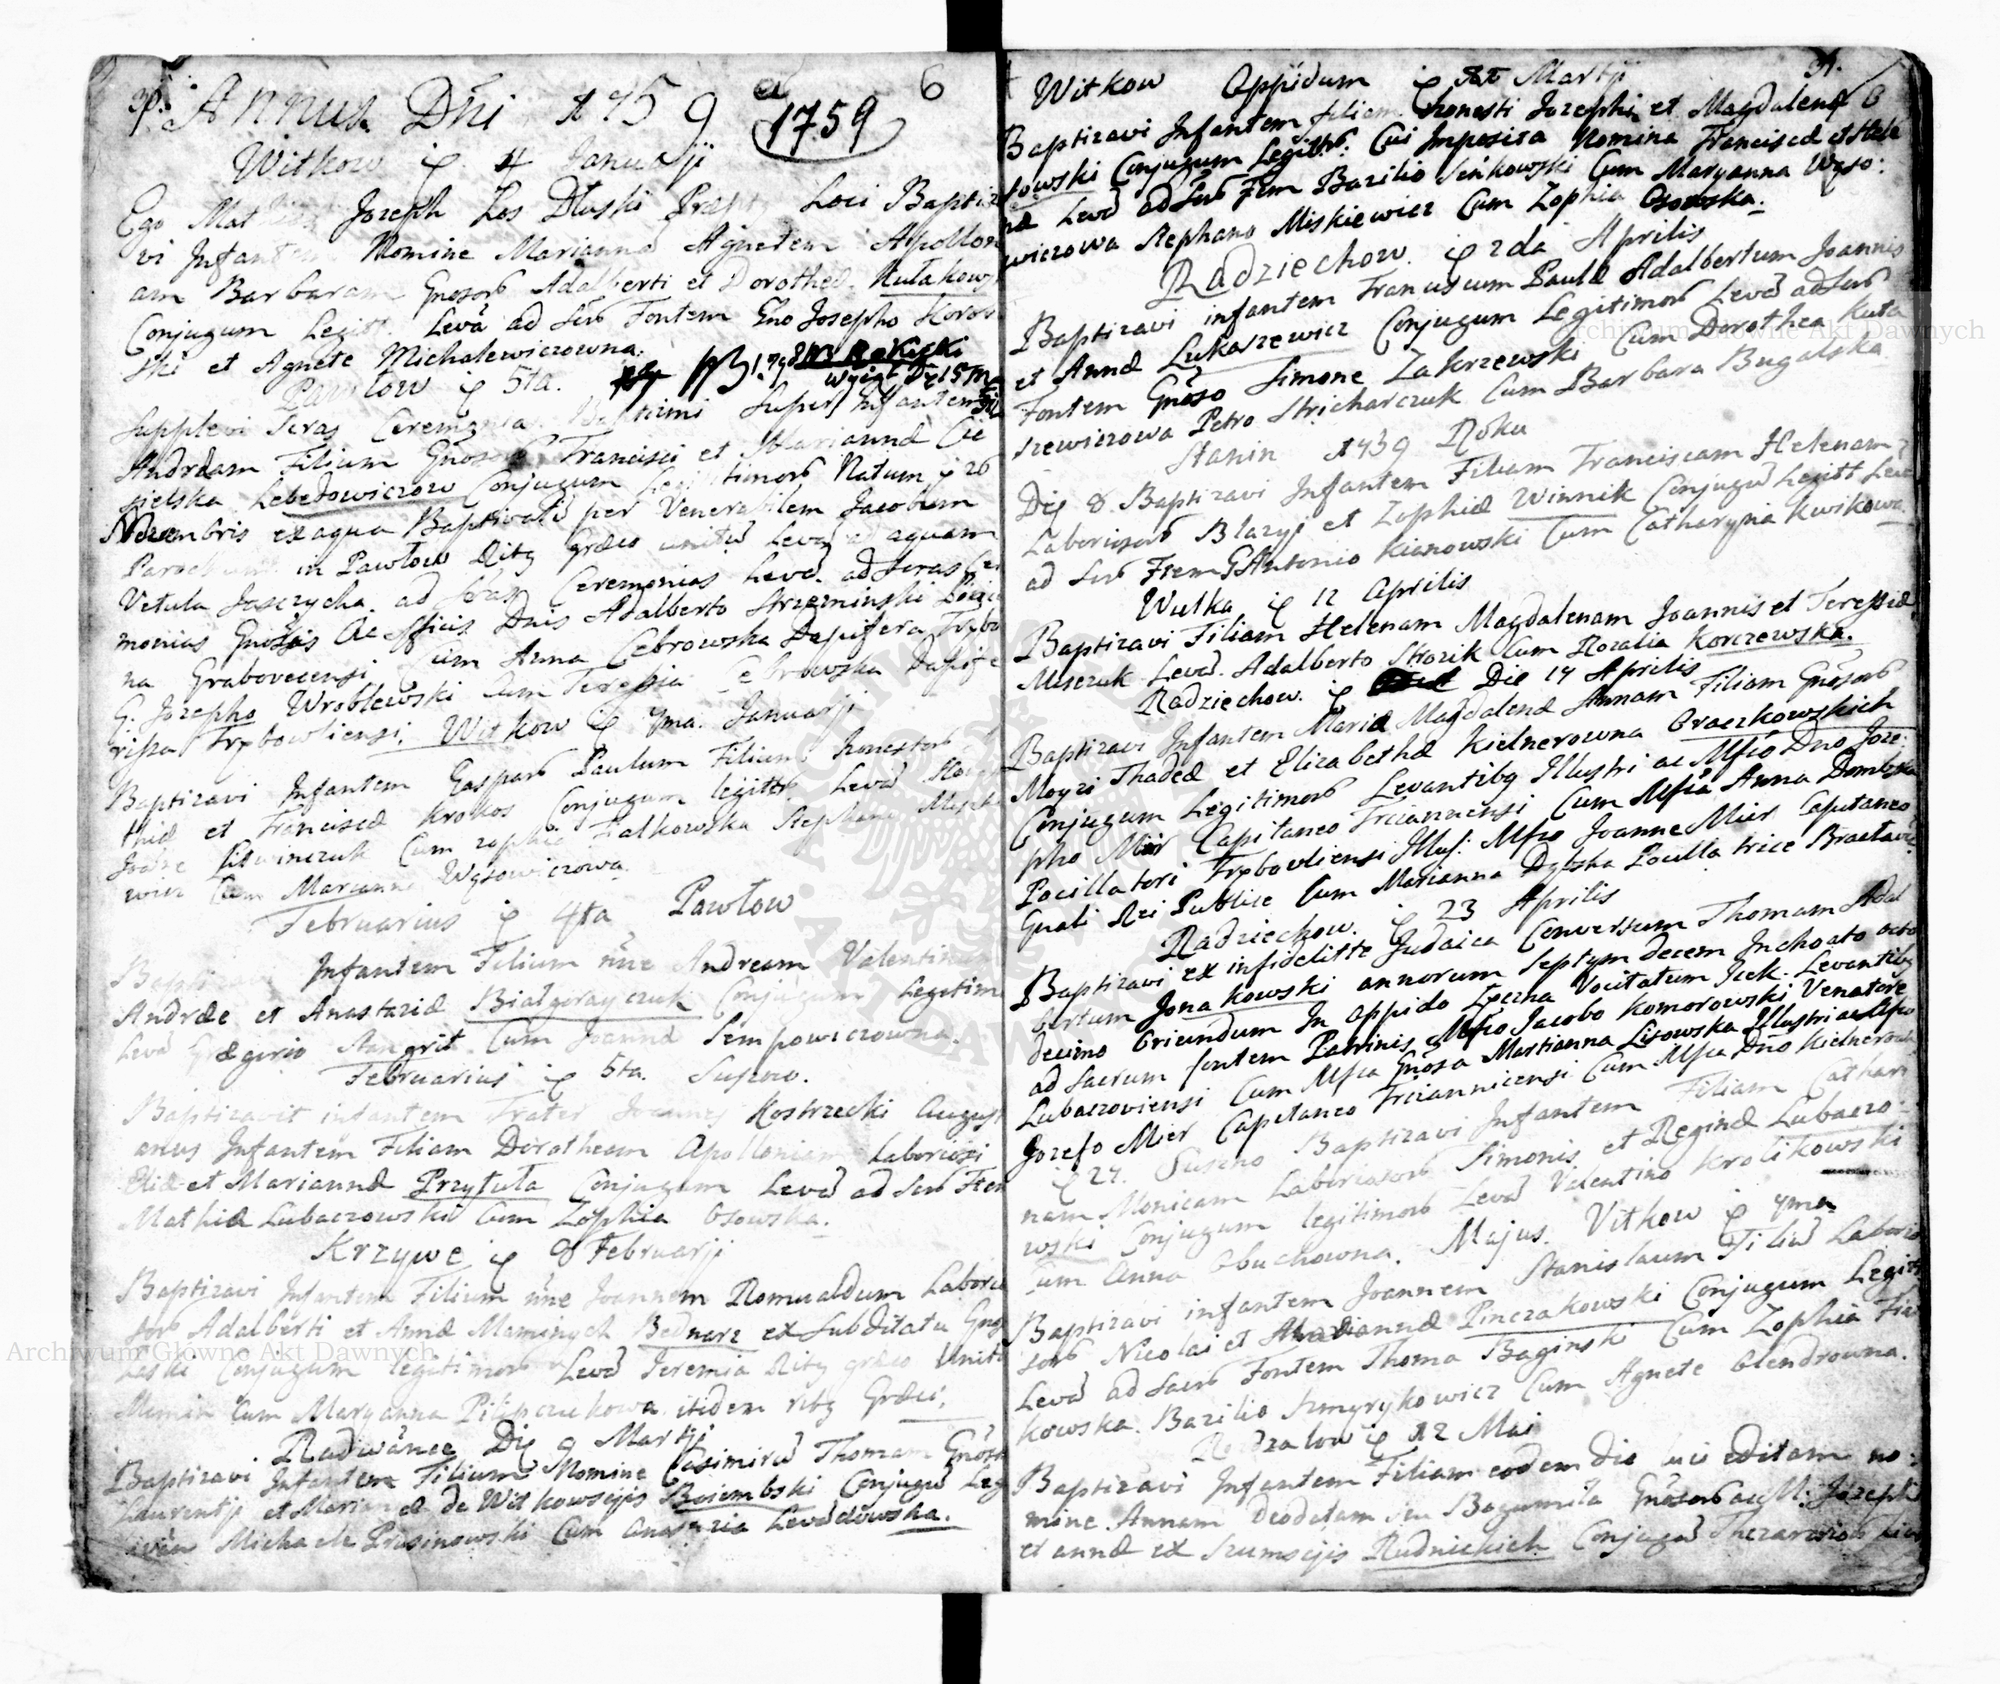 30. Annus Dni 1759 1759 6
Witkow ip. 4 Januarji
Ego Joseph Łos Dłuski Præpt Loci Baptiza
vi Infantem Nomine Mariannã Agnetem Apollon
am Barbaram Gnosorũ Adalberti et Dorotheæ Kułakow
Conjugum Legitt. Levã ad Scrũ Fontem Gno Josepho
ski et Agnete Michalewiczowna.
Pawłow ip 5ta. Rokicki
Supplevi Scras Ceremonias Baptizmi Super Infantem
Andræam Filium Gnosorũ Francisci et Mariannæ
sielska Lebedowiczow Conjugum Legitimorũ Natum ip 26
Novembris ex aqua Baptizatũ per Venerabilem Jacobum
Parochum in Pawłow Ritg Græco unitũ Levan ad aquam
Vetula Joszczycha ad Scras Ceremonias Levã. ad Scras Ce
monias Gnosis ac officis Dnis Adalberto Strzeminski
na Grabovecensi Cum Anna Cebrowska Dapifera Trybo
G. Jozepho Wroblewski Cum Teressia Cebrowska Dapife
rissa Trybowliensi. Witkow ip 7ma. Januarji
Baptizavi Infantem Gaspaũ Paulum Filium honestorũ
thiæ et Franciscæ Krokos Conjugum legittũ. Levã
Joane Litwinczuk Cum zophia Fialkowska Stephano
wicz Cum Marianna Wąsowiczowa.
Februarius ip 4ta Pawłow
Baptizavi Infantem Filium nne Andream Valentinum
Andræe et Anastaziæ Białgorayczuk Conjugum Legitim
Levã Grægorio Stangrit Cum Joanna Sempowiczowna.
Februarius ip 5ta. Suszno.
Baptizavit infantem Frater Joannes Kostrzecki August
anus Infantem Filiam Dorotheam Apolloniam Laboriosi
Eliæ et Mariannæ Przytuła Conjugum Levã ad Scrũ Ften
Mathia Lubaczowski Cum Zophia Osowska.
Krzywe ip 8 Februarji
Baptizavi Infantem Filium nne Joannem Romualdum Laborio
sorũ Adalberti et Annæ Maminych Bednarz ex Subditatu Gnos
Łaski Conjugum legitimorũ Levã Jeremia Ritg græco Unito
Cum Maryanna Pilipczukowa itidem ritg Græci.
Radwánce Die 9 Martji
Baptizavi Infantem Filium Nomine Casimirũ Thomam Gnosor
Laurentij et Mariannæ de Witkowscijs Boiembski Conjugũ Leg
Michaele Prusinowski Cum Anastazia Levãdowska.
31.
Witkow Oppidum ip 1ma Martji 6
Baptizavi Infantem filiam honesti Jozephi et Magdalenæ
towski Conjugum Legittũ. Cui Imposita Nomina Franciscæ et Hele
næ Levã ad Scrũ Ftem Bazilio Sienkowski Cum Maryanna Wąso:
wiczowa Stephano Miskiewicz Cum Zophia Osowska.
Radziechow. ip 2da Aprilis
Baptizavi infantem Franciscum Paulæ Adalbertum Joannis
et Annæ Łukaszewicz Conjugum Legitimorũ Levã ad Scrũ
Fontem Gnoso Simone Zakrzewski Cum Dorothea Kuła
szewiczowa Petro Stricharczuk Cum Barbara Bugalska
Stanin 1759 Roku
Die 8. Baptizavi Infantem Filiam Franciscam Helenam
Laboriosorũ Blazyj et Zophiæ Winnik Conjugũ Legitt Levã
ad Scrũ Ftem G Antonio Kianowski Cum Catharyna Kwikowa.
Wulka ip 12 Aprilis
Baptizavi Filiam Helenam Magdalenam Joannis et Teressiæ
Misczuk Levã. Adalberto Stozik Cum Rozalia Korczewska.
Radziechow. ip Die 17 Aprilis
Baptizavi Infantem Mariæ Magdalenæ Annam Filiam Gnosorũ
Moyzi Thadeæ et Elizabethæ Kielnerowna Graczkowskich
Conjugum Legitimorũ Levantibg Illustri ac Mfco Dno Joze:
pho Mier Capitaneo Trezannensi Cum Mfca Anna Dombska
Pocillatori Trybovliensi Illus: Mfco Joanne Mier Capitaneo
Gnali Rei Publice Cum Marianna Dybska Pocillatrice Bracłavi
Radziechow. ip 23 Aprilis
Baptizavi ex infidelitte Judaica Conversum Thomam Adal
bertum Jonakowski annorum Septym decem Inchoato octo
decimo Oriundum In Oppido Vocitatum Icek. Levantibg
ad Sacrum fontem Patrinis Mfco Jacobo Komorowski Venatore
Lubaczoviensi Cum Mfca Gnosa Martianna Lisowska Illustri ac Mfco
Jozefo Mier Capitaneo Trezannicensi Cum Mfca Dno Kielnerow
ip 27. Suszno Baptizavi Infantem Filiam Cathari
nam Monicam Laboriosorũ Simonis et Reginæ Lubaczo
wski Conjugum legitimorũ Levã Valentino Krolikowski
Cum Anna Obuchowna. Majus. Vitkow ip 7ma
Baptizavi infantem Joannem Stanislaum Filiũ Laborio
sorũ Nicolai et Mariannæ Pinczakowski Conjugum Legitt
Levã ad Sacrũ Fontem Thoma Baginski Cum Zophia Fiał
kowska. Bazilio Szmyrykowicz Cum Agnete Olendrowna.
ip 12 Mai
Baptizavi Infantem Filiam eodem Die luci editam no:
mine Annam Deodatam seu Bogumiła Gnosorũ ac M. Jozephi
et annæ ex Szumscijs Rudnickich Conjugũ
Archiwum Główne Akt Dawnych
Archiwum Główne Akt Dawnych